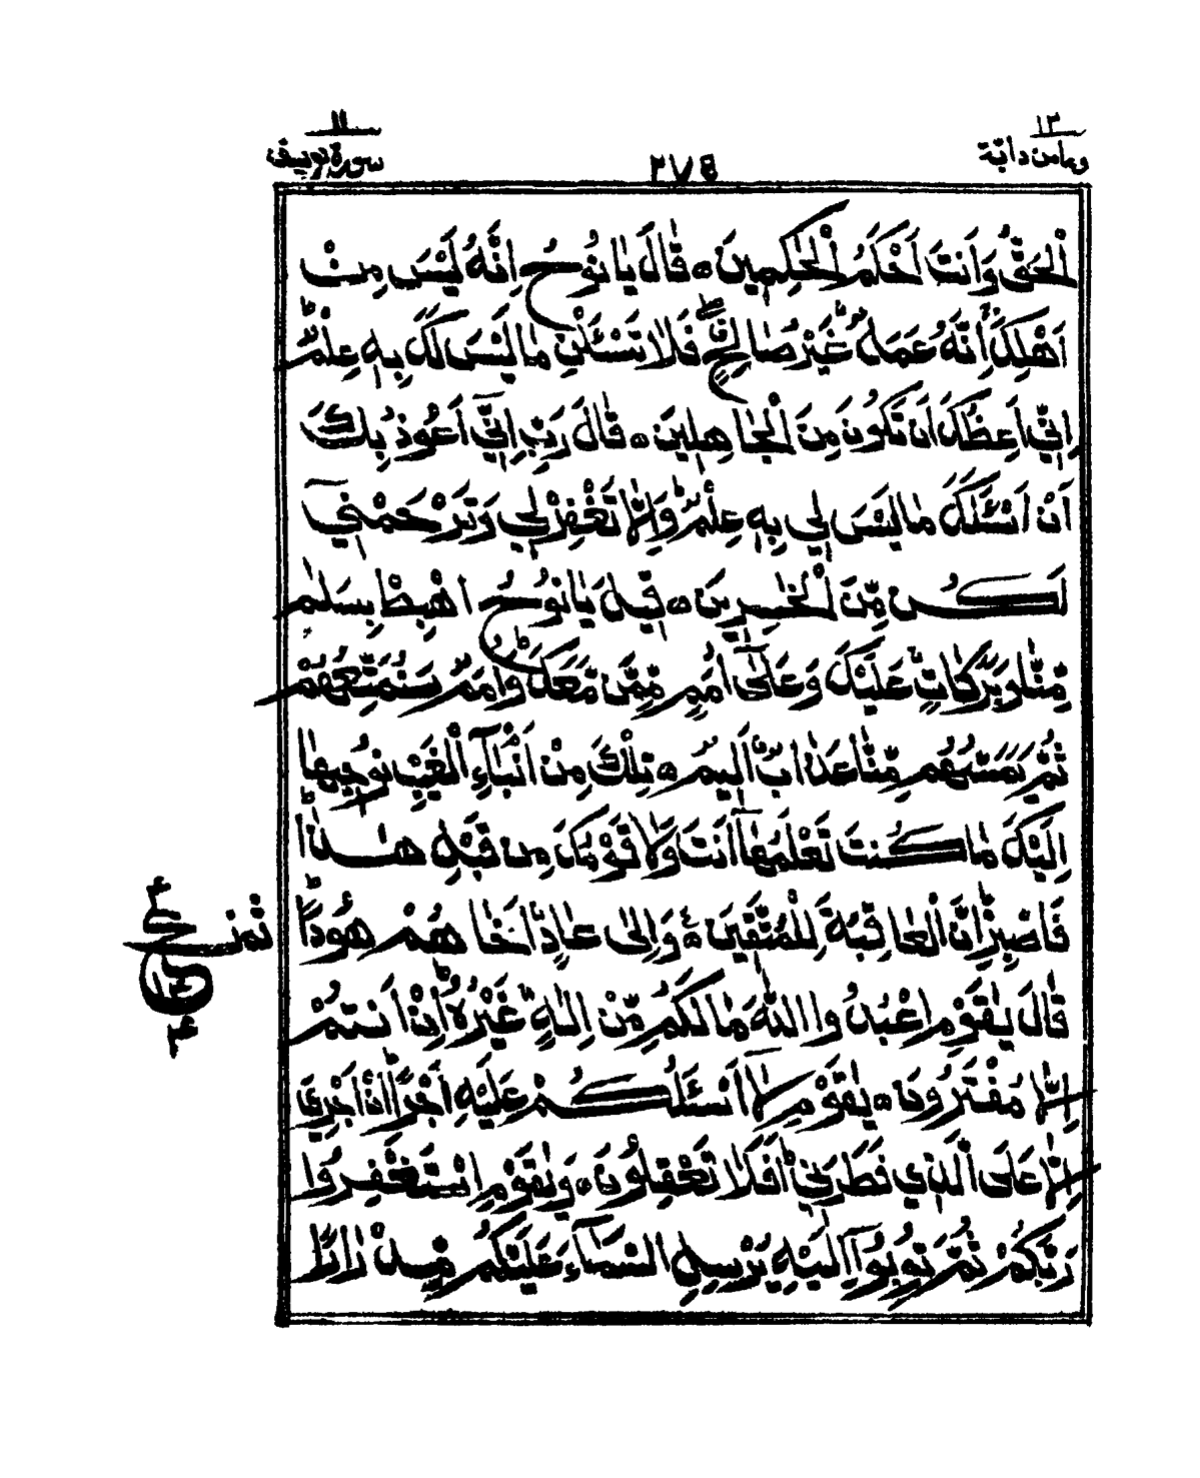 ١٢
وما من دابّة
٢٧٤
١١
سورة يوسف
اْلحَقُّ وَاَنتَ اَحْكَمُ اْلحٰكِمِينَ ه قٰالَ يٰا نُوحُ اِنَّهُ لَيْسَ مِنْ
اَهْلِكَ اِنَّهُ عَمَلٌ غَيْرُ صٰالِحٍ فَلا تَسْئَلْنِ مٰا لَيْسَ لَكَ بِهِ عِلْمٌ
اِنِّي اَعِظُكَ اَن تَكُونَ مِنَ اْلجٰاهِلِينَ ه قٰالَ رَبِّ اِنِّي اَعُوذُ بِكَ
اَنْ اَسْئَلَكَ مٰا لَيْسَ لِي بِهِ عِلْمٌ وَاِلّٰا تَغْفِرْ لِي وَتَرْحَمْنِي
اَكُن مِّنَ اْلخٰسِرِينَ ه قِيلَ يٰا نُوحُ اهْبِطْ بِسَلٰمٍ
مِّنّٰا وَبَرَكٰاتٍ عَلَيْكَ وَعَلٰى اُمَمٍ مِّمَّن مَّعَكَ وَاُمَمٌ سَنُمَتِّعُهُمْ
ثُمَّ يَمَسُّهُم مِّنّٰا عَذٰابٌ اَلِيمٌ ه تِلْكَ مِنْ اَنْبٰآءِ اْلغَيْبِ نُوحِيهٰا
اِلَيْكَ مٰا كُنتَ تَعْلَمُهٰا اَنتَ وَلٰا قَوْمُكَ مِن قَبْلِ هٰذٰا
فَاصْبِرْ اِنَّ اْلعٰاقِبَةَ لِلْمُتَّقِينَ ه وَاِلٰى عٰادٍ اَخٰاهُمْ هُودًا
ثمن
قٰالَ يٰقَوْمِ اعْبُدُوا اللّٰهَ مٰا لَكُم مِّنْ اِلٰهٍ غَيْرُهُ اِنْ اَنتُمْ
اِلّٰا مُفْتَرُونَ ه يٰقَوْمِ لٰا اَسْئَلُكُمْ عَلَيْهِ اَجْرًا اِنْ اَجْرِيَ
اِلّٰا عَلَى الَّذِي فَطَرَنِي اَفَلٰا تَعْقِلُونَ ه وَيٰقَوْمِ اسْتَغْفِرُوا
رَبَّكُمْ ثُمَّ تُوبُوا اِلَيْهِ يُرْسِلِ السَّمٰآءَ عَلَيْكُم مِّدْرٰارًا